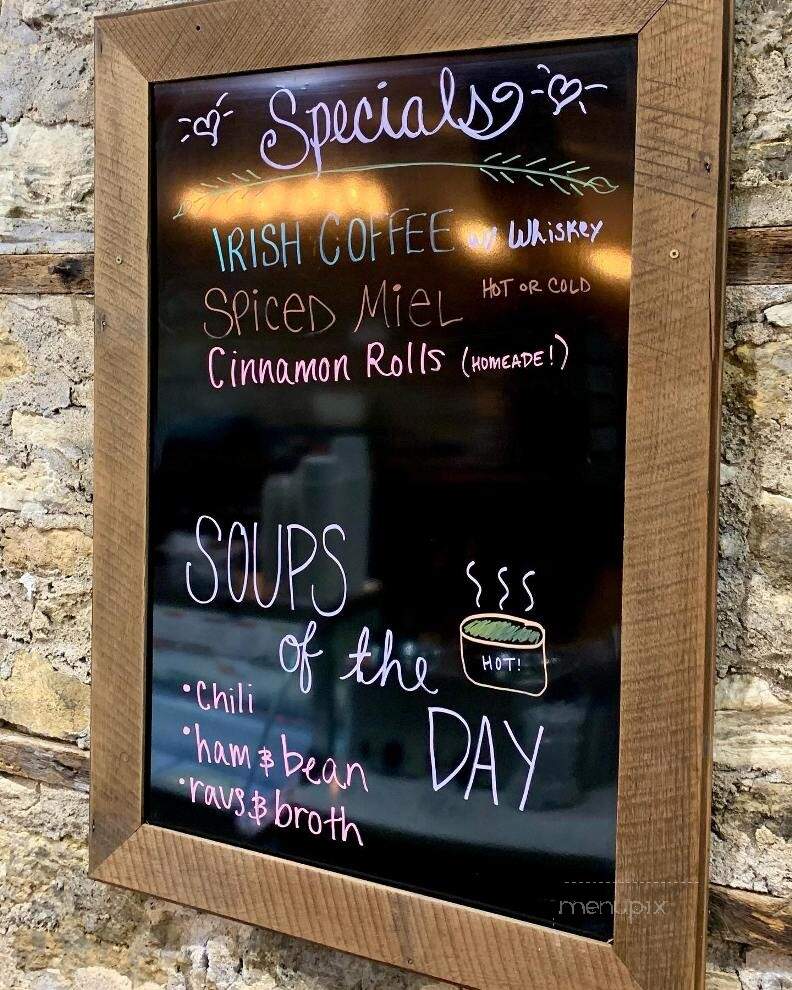 Specials
IRISH COFFEE w/ Whiskey
SPICED MIEL HOT OR COLD
Cinnamon Rolls (HOMEADE!)
SOUPS
of the
HOT!
DAY
•Chili
•ham & bean
•ravs & broth
menupix